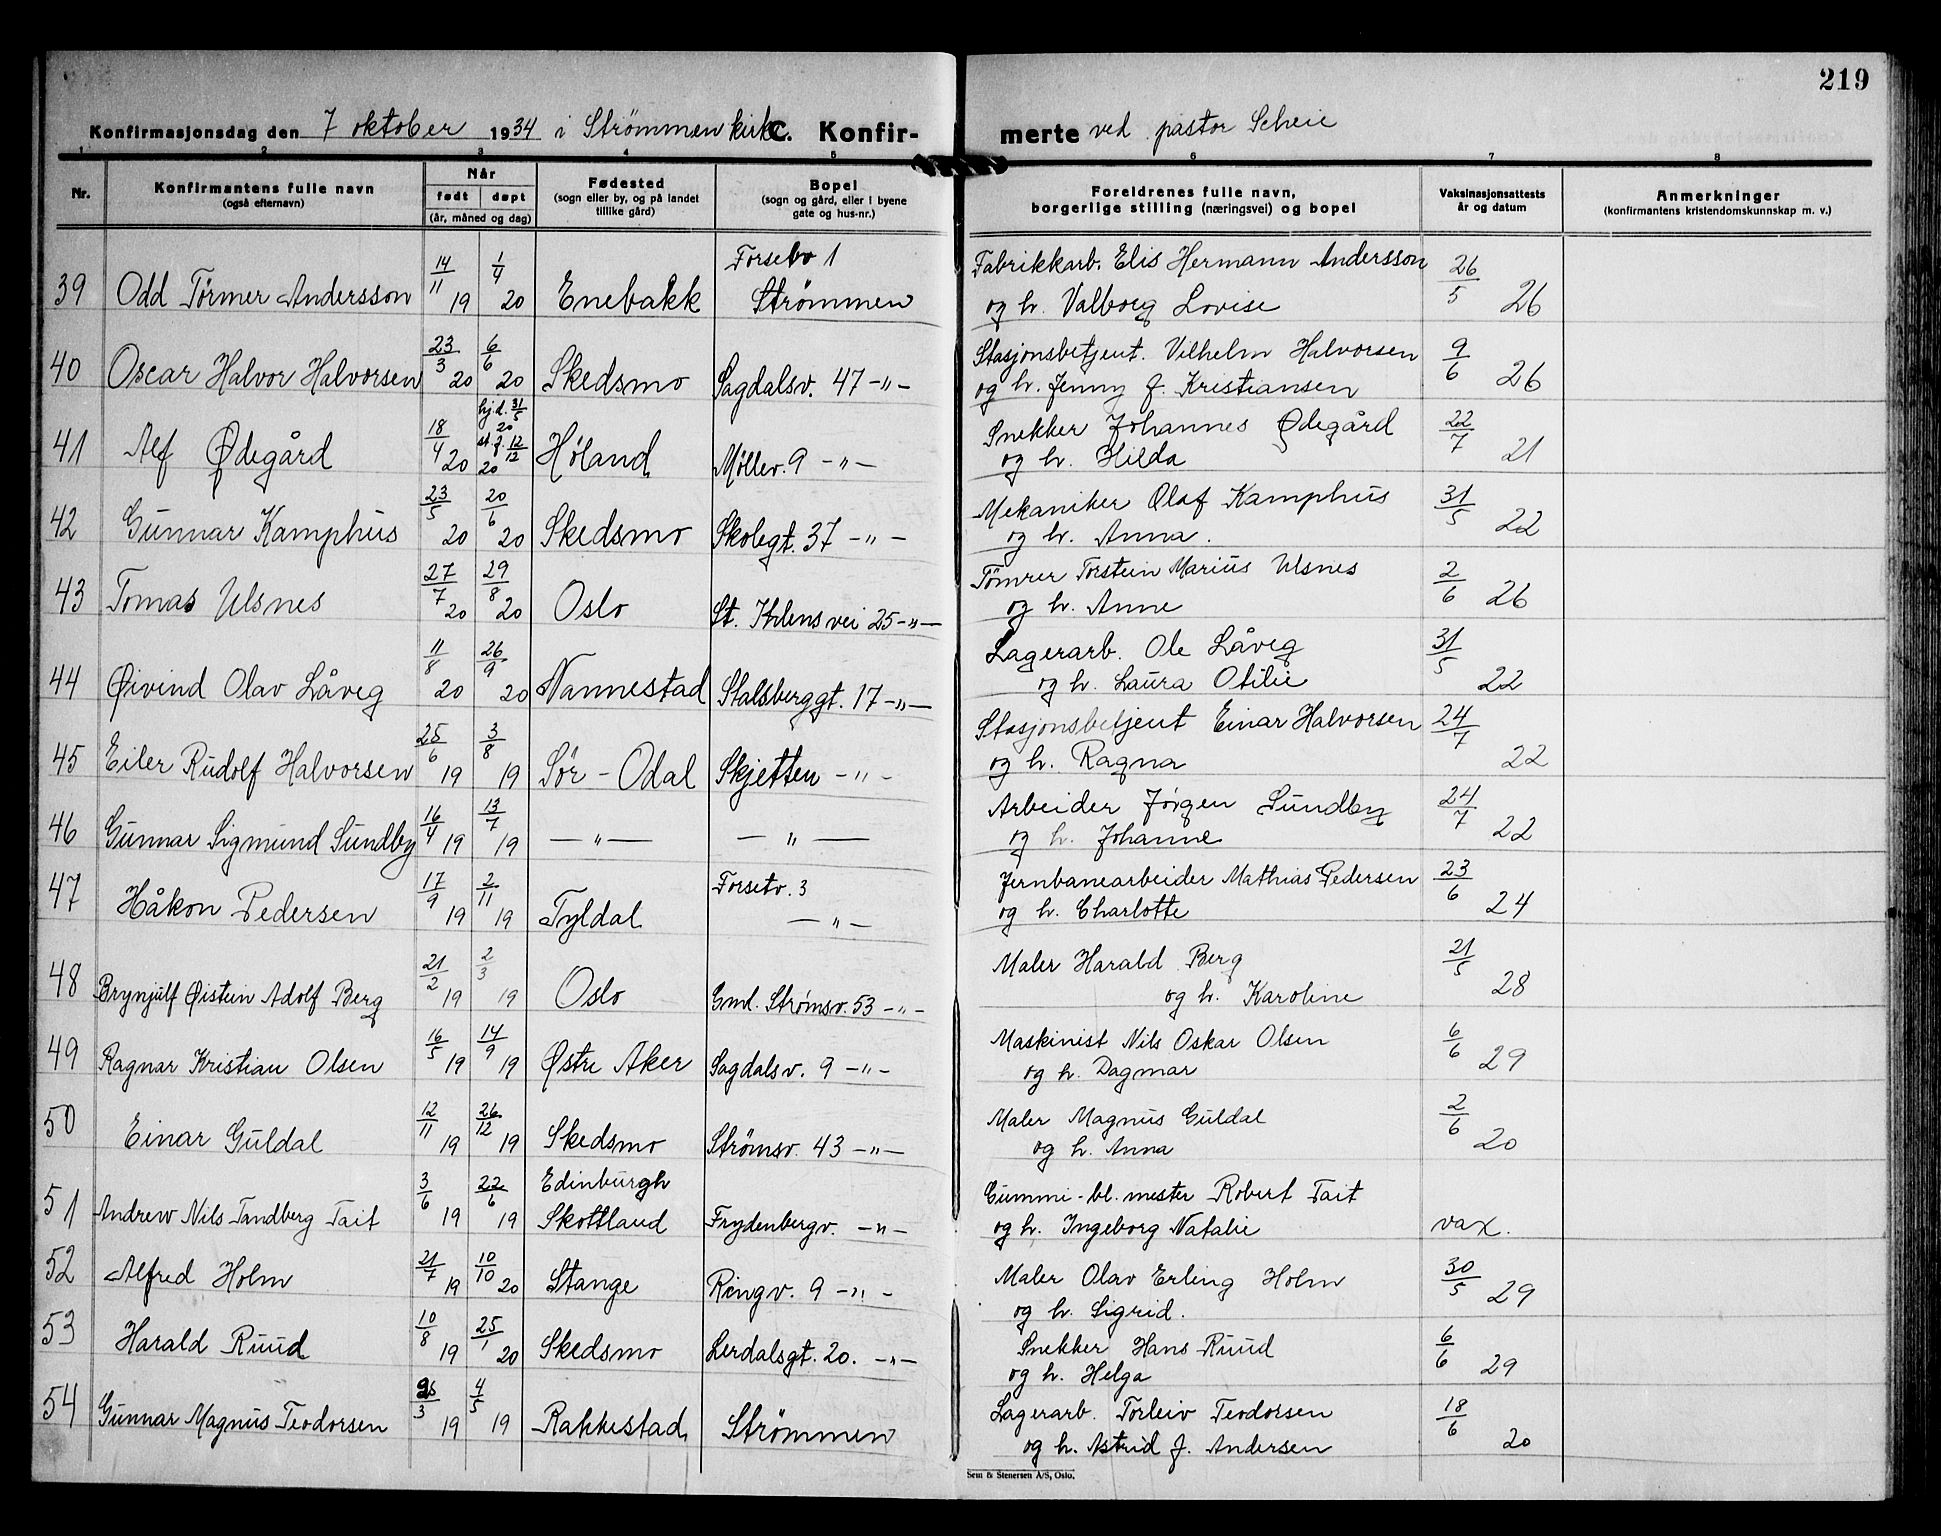 219
Konfirmasjonsdag den 7 oktober 1934 i Strömmen kirke C. Konfir-merte ved pastor Scheie
1 2 3 4 5 6 7 8
Nr. Konfirmantens fulle navn (også efternavn) Når født døpt (år, måned og dag) Fødested (sogn eller by, og på landet tillike gård) Bopel (sogn og gård, eller i byene gate og hus-nr.) Foreldrenes fulle navn, borgerlige stilling (næringsvei) og bopel Vaksinasjonsattests år og datum Anmerkninger (konfirmantens kristendomskunnskap m. v.)
39 Odd Tormer Andersson 14/11 19 1/4 20 Enebakk Forsebv 1 Strömmen Fabrikkarb. Elis Hermann Andersson og h. Valborg Lovise 26/5 26
40 Oscar Halvor Halvorsen 23/3 20 6/6 20 Skedsmo Sagdalsv. 47 -"- Stasjonsbetjent. Vilhelm Halvorsen og h. Jenny f. Kristiansen 9/6 26
41 Alf Ødegård 18/4 20 hj.d. 31/5 20 st.f. 12/12 20 Høland Møllev. 9 -"- Snekker Johannes Ødegård og h. Hilda 22/7 21
42 Gunnar Kamphus 23/5 20 20/6 20 Skedsmo Skolegt. 37 -"- Mekaniker Olaf Kamphus og h. Anna. 31/5 22
43 Tomas Ulsnes 27/7 20 29/8 20 Oslo St. Ihlens vei 25 -"- Tömrer Torstein Marius Ulsnes og h. Anne 2/6 26
44 Øivind Olav Låveg 11/8 20 26/9 20 Nannestad Stalsberggt. 17 -"- Lagerarb. Ole Låveg og h. Laura Otilie 31/5 22
45 Eiler Rudolf Halvorsen 25/6 19 3/8 19 Sör-Odal Skjetten -"- Stasjonsbetjent Einar Halvorsen og h. Ragna 24/7 22
46 Gunnar Sigmund Sundby 16/4 19 13/7 19 -"- -"- Arbeider Jörgen Sundby og h. Johanne 24/7 22
47 Håkon Pedersen 17/9 19 2/11 19 Tyldal Forsetv. 3 -"- Jernbanearbeider Mathias Pedersen og h. Charlotte 23/6 24
48 Brynjulf Øistein Adolf Berg 21/2 19 2/3 19 Oslo Gml. Strømsv. 53 -"- Maler Harald Berg og h. Karoline 21/5 28
49 Ragnar Kristian Olsen 16/5 19 14/9 19 Østre Aker Sagdalsv. 9 -"- Maskinist Nils Oskar Olsen og h. Dagmar 6/6 29
50 Einar Guldal 12/11 19 26/12 19 Skedsmo Strömsv. 43 -"- Maler Magnus Guldal og h. Anna 2/6 20
51 Andrew Nils Tandberg Tait 3/6 19 22/6 19 Edinburgh Skottland Frydenbergv. -"- Gummi-bl. mester Robert Tait og h. Ingeborg Natalie vax.
52 Alfred Holm 21/7 19 10/10 20 Stange Ringv. 9 -"- Maler Olav Erling Holm og h. Sigrid. 30/5 29
53 Harald Ruud 10/8 19 25/1 20 Skedsmo Lerdalsgt. 20. -"- Snekker Hans Ruud og h. Helga 6/6 29
54 Gunnar Magnus Teodorsen 26/3 19 4/5 19 Rakkestad Strömmen Lagerarb. Torleiv Teodorsen og h. Astrid f. Andersen 18/6 20
Sem & Stenersen A/S, Oslo.